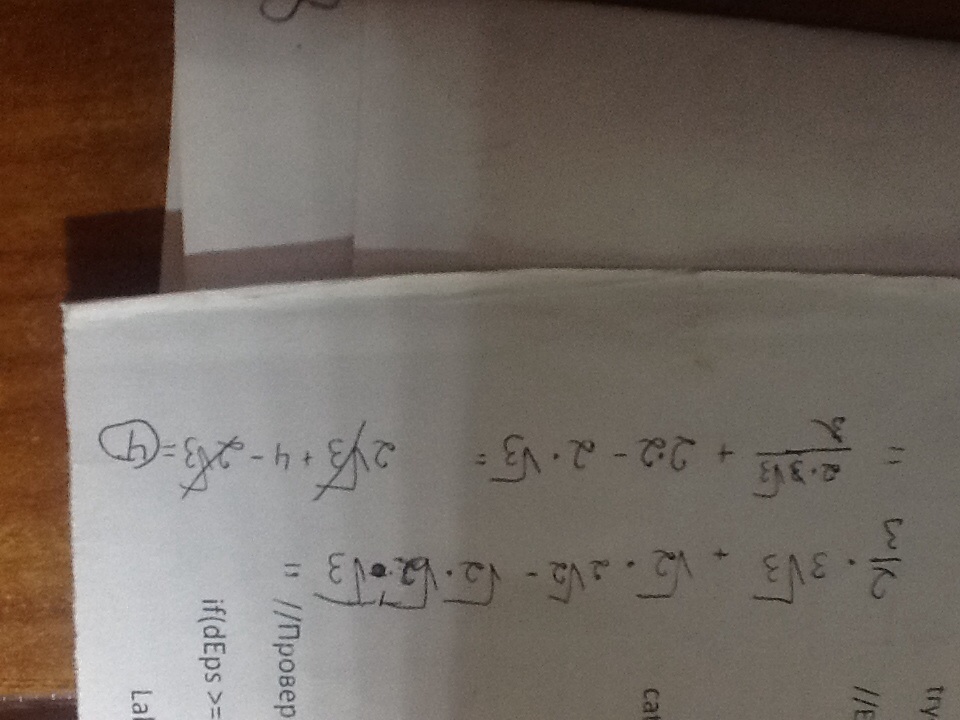 2/3 · 3√3 + √2 · 2√2 - √2 · √2 · √3 =
= 2·3√3/3 + 2·2 - 2·√3 = 2√3 + 4 - 2√3 = 4
try
//Провер
if(dEps >=